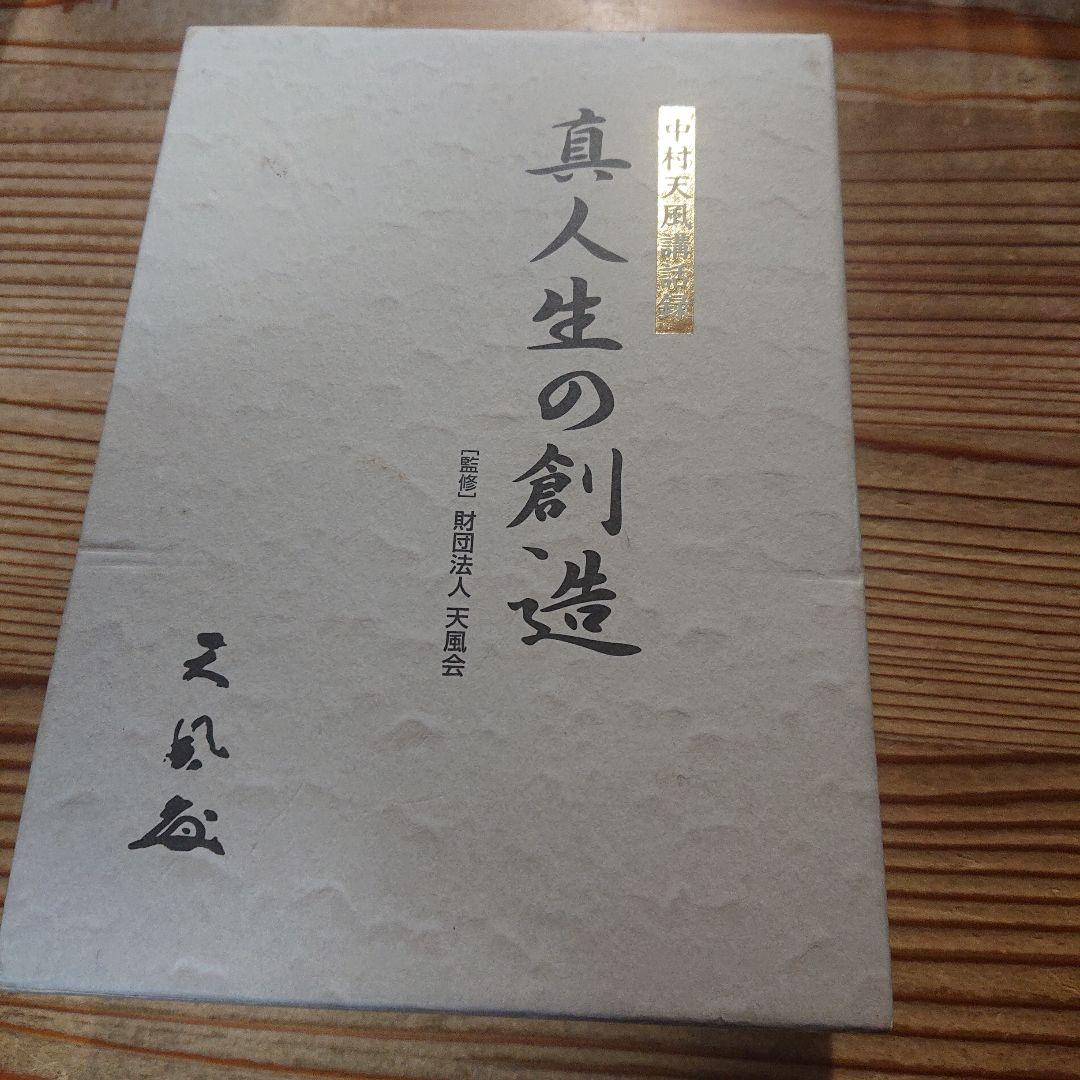 中村天風講話録
真人生の創造
［監修］ 財団法人 天風会
天風